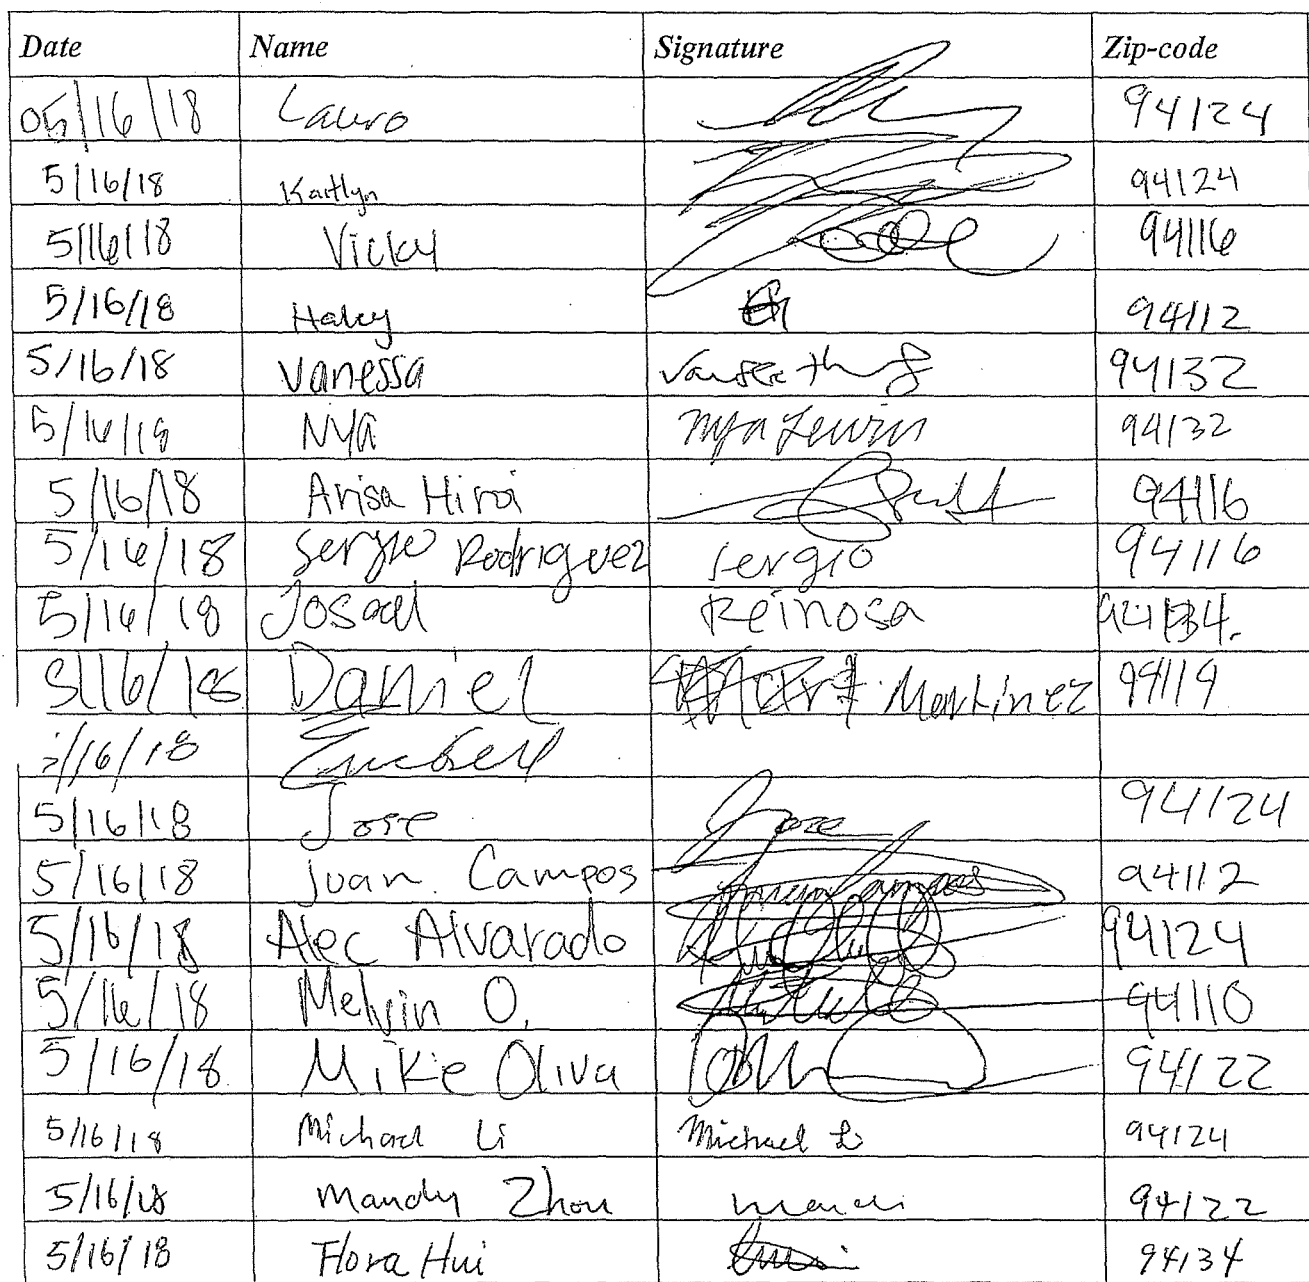 Date Name Signature Zip-code
05/16/18 Lauro 94124
5/16/18 Kaitlyn 94124
5/16/18 Vicky 94116
5/16/18 Haley 94112
5/16/18 Vanessa 94132
5/16/18 NYA Nya Lewin 94132
5/16/18 Arisa Hiroi 94116
5/16/18 Sergio Rodriguez Sergio 94116
5/16/18 Josael Reinosa 94134.
5/16/18 Daniel Martinez 94119
5/16/18
5/16/18 Jose Jose 94124
5/16/18 Juan Campos Juan Campos 94112
5/16/18 Alec Alvarado 94124
5/16/18 Melvin O. 94110
5/16/18 Mike Oliva 94122
5/16/18 Michael Li Michael Li 94124
5/16/18 Mandy Zhou 94122
5/16/18 Flora Hui 94134